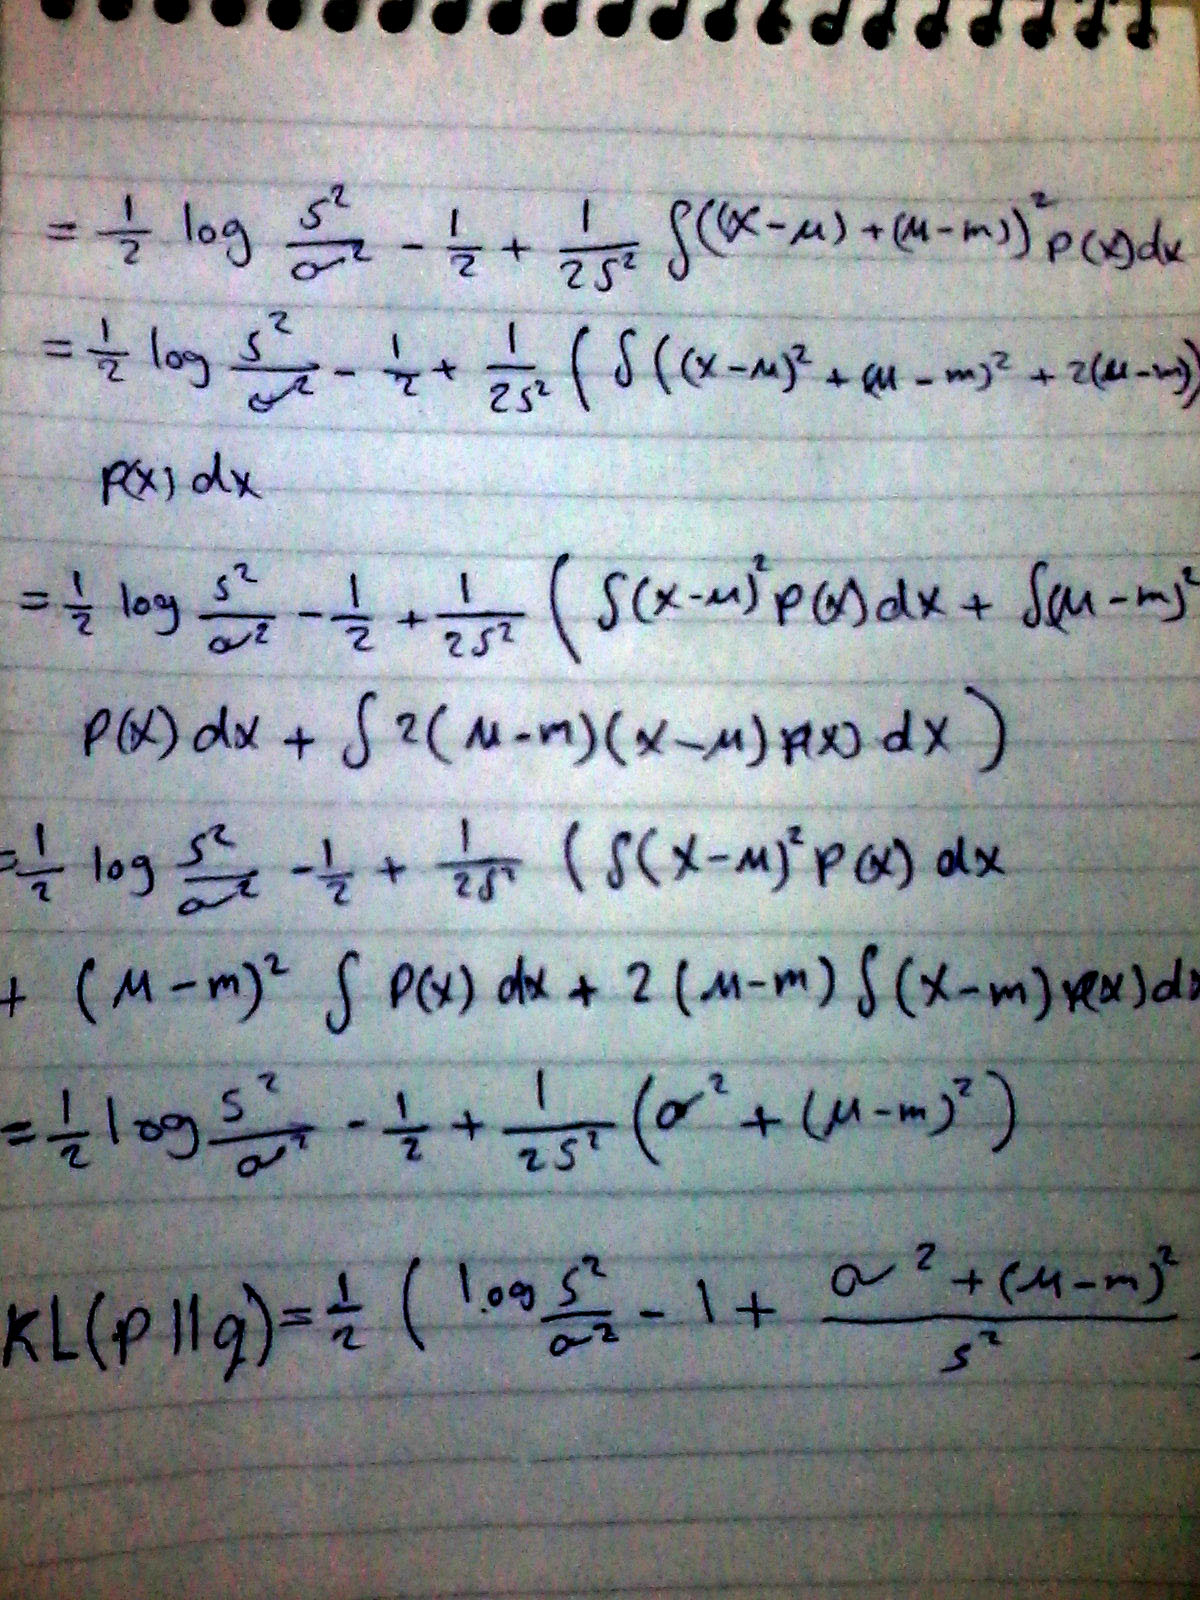 = 1/2 log s²/σ² - 1/2 + 1/2s² ∫((x-μ)+(μ-m))² p(x)dx
= 1/2 log s²/σ² - 1/2 + 1/2s² (∫((x-μ)² + (μ-m)² + 2(μ-m))
p(x) dx
= 1/2 log s²/σ² - 1/2 + 1/2s² (∫(x-μ)² p(x) dx + ∫(μ-m)²
p(x) dx + ∫2(μ-m)(x-μ) p(x) dx)
= 1/2 log s²/σ² - 1/2 + 1/2s² (∫(x-μ)² p(x) dx
+ (μ-m)² ∫ p(x) dx + 2(μ-m) ∫(x-m) p(x) dx
= 1/2 log s²/σ² - 1/2 + 1/2s² (σ² + (μ-m)²)
KL(p||q) = 1/2 ( log s²/σ² - 1 + σ² + (μ-m)²/s²